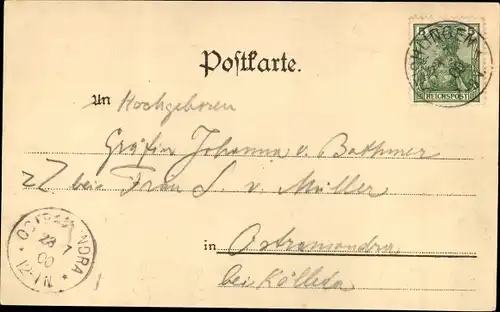 Postkarte.
An Hochgeboren
Gräfin Johanna v. Bothmer
z Z bei Frau S. v. Müller
in Ostramondra
bei Kölleda
REICHSPOST
OSTRAMONDRA
00
12-1N